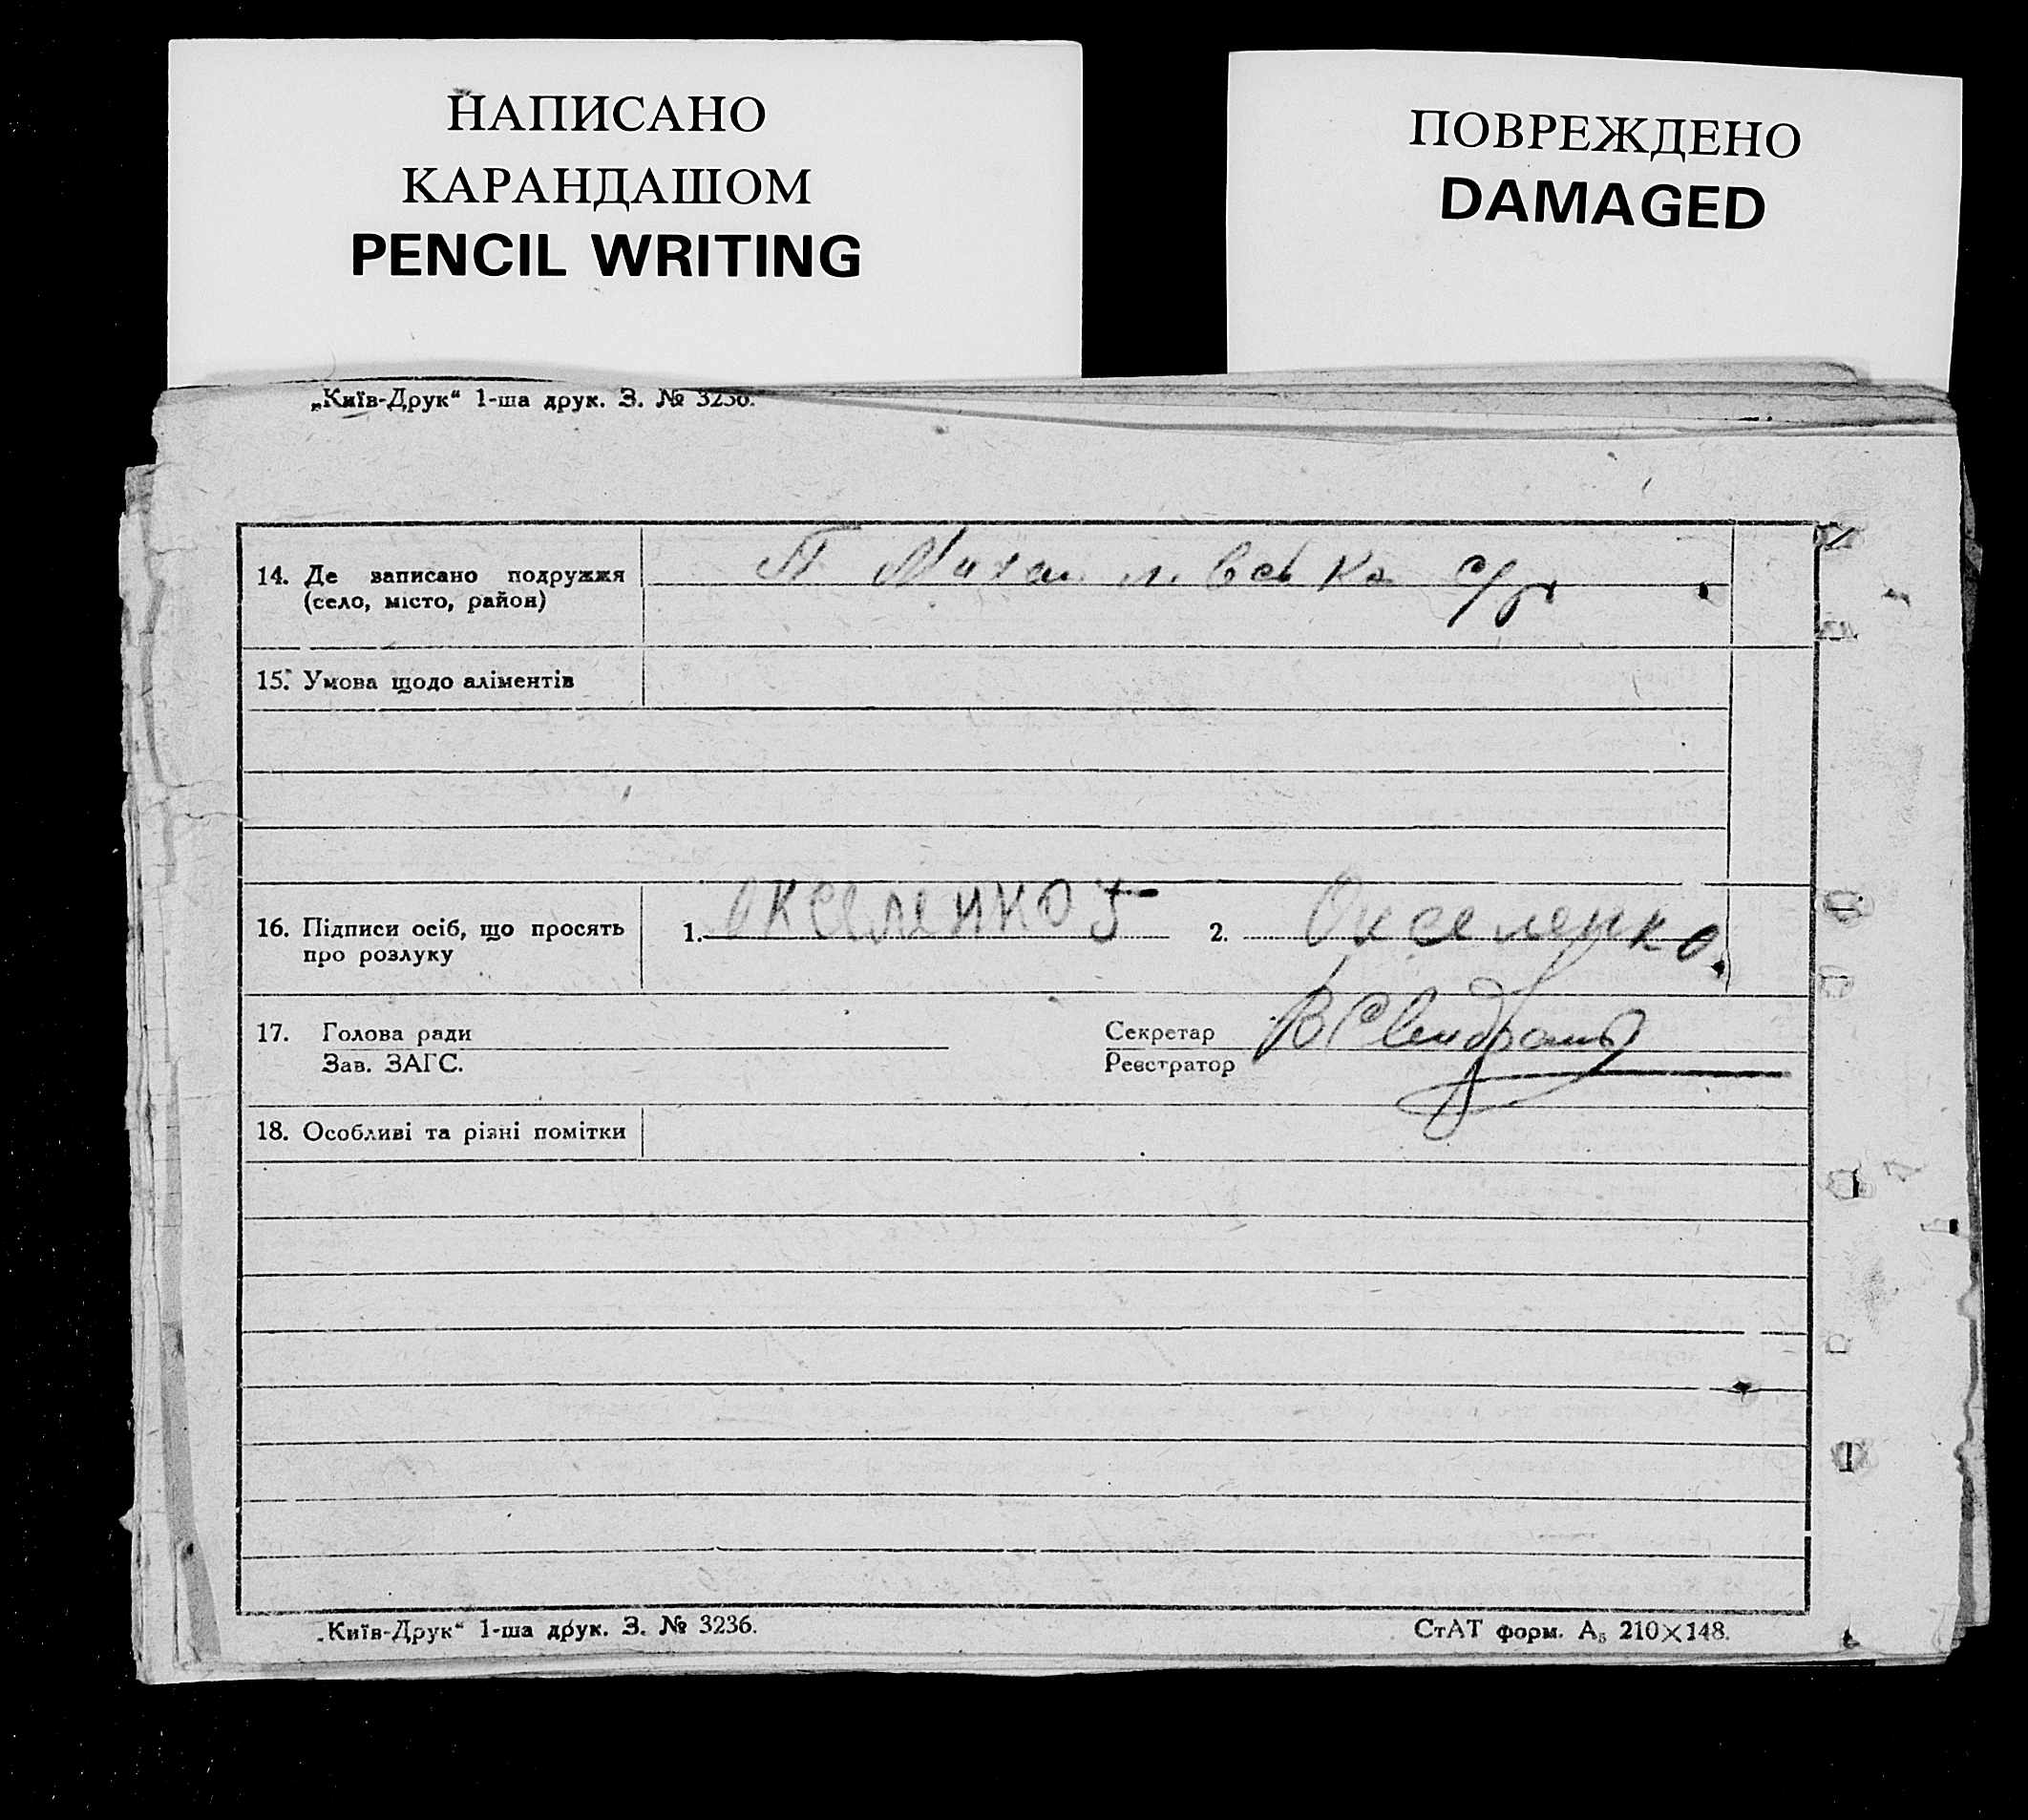 НАПИСАНО
КАРАНДАШОМ
PENCIL WRITING
ПОВРЕЖДЕНО
DAMAGED
„Київ-Друк“ 1-ша друк. З. № 3236.
14. Де записано подружжя
(село, місто, район)
П Михайлівська с/р
15. Умова щодо аліментів
16. Підписи осіб, що просять
про розлуку
1. Окселенко
2. Окселенко
17. Голова ради
Зав. ЗАГС.
Секретар
Реєстратор
18. Особливі та різні помітки
„Київ-Друк“ 1-ша друк. З. № 3236.
СтАТ форм. А₅ 210×148.